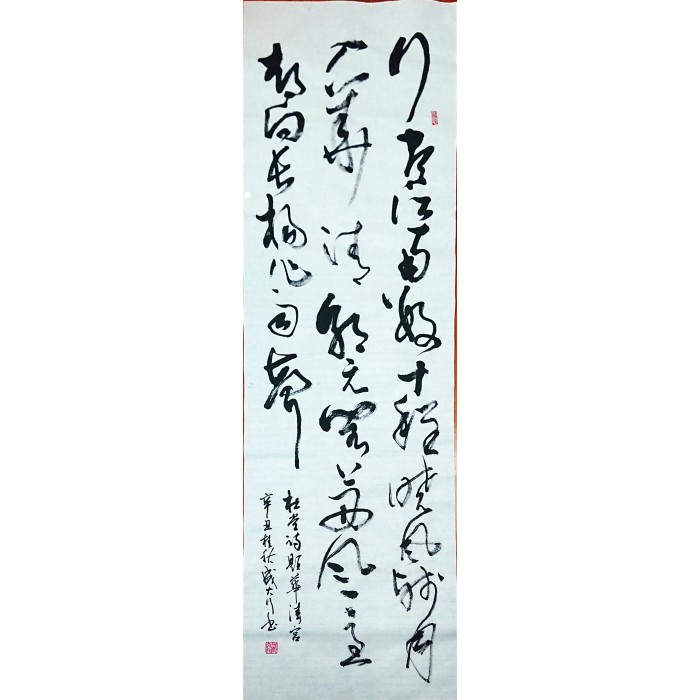 行尽江南数十程晓风残月
入华清朝元阁上西风急
都向长杨作雨声
杜常诗题华清宫
辛丑桂秋